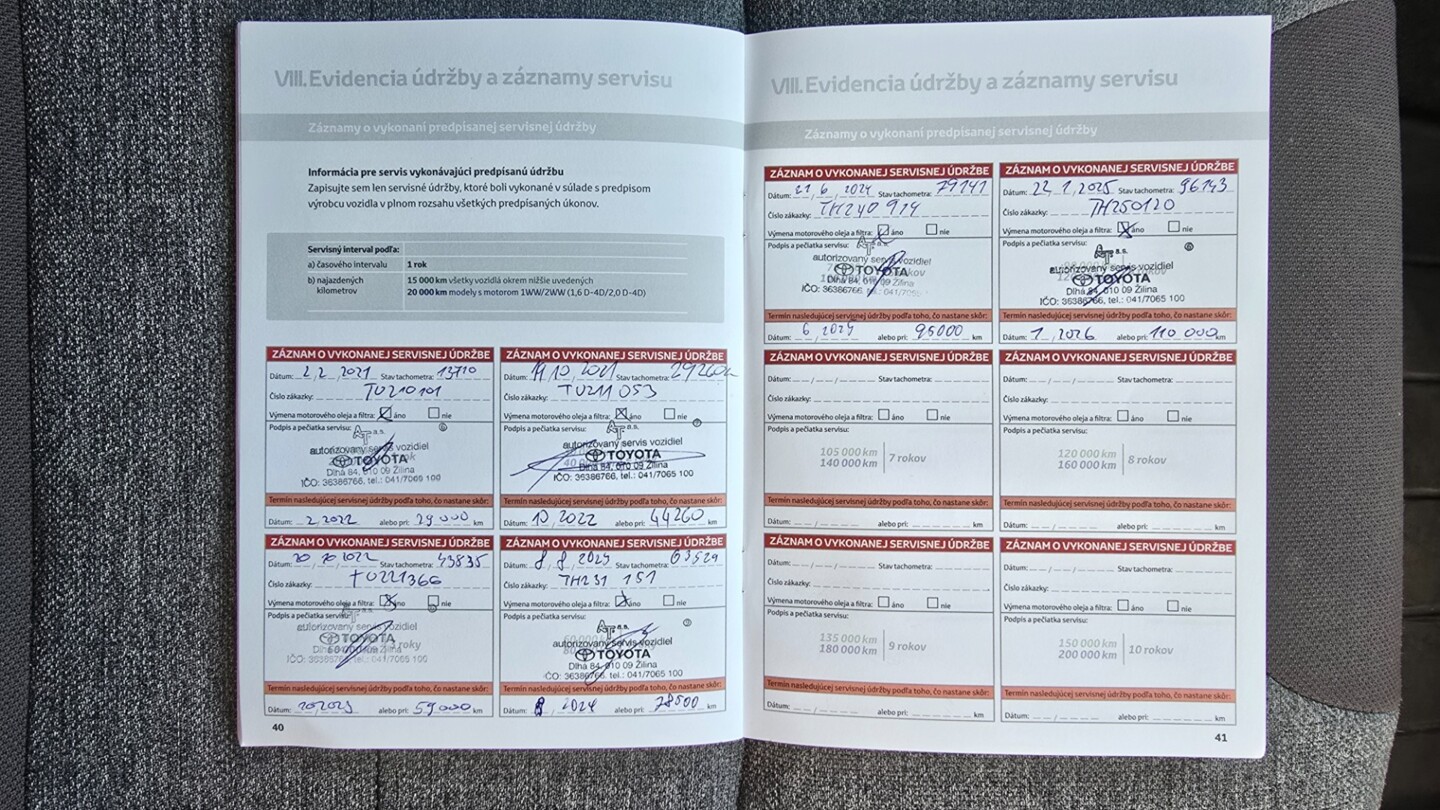 VIII. Evidencia údržby a záznamy servisu
Záznamy o vykonaní predpísanej servisnej údržby
Informácia pre servis vykonávajúci predpísanú údržbu
Zapisujte sem len servisné údržby, ktoré boli vykonané v súlade s predpisom
výrobcu vozidla v plnom rozsahu všetkých predpísaných úkonov.
Servisný interval podľa:
a) časového intervalu 1 rok
b) najazdených 15 000 km všetky vozidlá okrem nižšie uvedených
kilometrov 20 000 km modely s motorom 1WW/2WW (1,6 D-4D/2,0 D-4D)
ZÁZNAM O VYKONANEJ SERVISNEJ ÚDRŽBE
Dátum: 2 2 2021 Stav tachometra: 13710
Číslo zákazky: TU210101
Výmena motorového oleja a filtra: áno nie
Podpis a pečiatka servisu:
AT a.s.
autorizovaný servis vozidiel
TOYOTA
Dlhá 84, 010 09 Žilina
IČO: 36386766, tel.: 041/7065 100
Termín nasledujúcej servisnej údržby podľa toho, čo nastane skôr:
Dátum: 2 2022 alebo pri: 29000 km
ZÁZNAM O VYKONANEJ SERVISNEJ ÚDRŽBE
Dátum: 10 2021 Stav tachometra: 29260
Číslo zákazky: TU211053
Výmena motorového oleja a filtra: áno nie
Podpis a pečiatka servisu:
AT a.s.
autorizovaný servis vozidiel
TOYOTA
Dlhá 84, 010 09 Žilina
IČO: 36386766, tel.: 041/7065 100
Termín nasledujúcej servisnej údržby podľa toho, čo nastane skôr:
Dátum: 10 2022 alebo pri: 44260 km
ZÁZNAM O VYKONANEJ SERVISNEJ ÚDRŽBE
Dátum: 10 2022 Stav tachometra: 43835
Číslo zákazky: TU221366
Výmena motorového oleja a filtra: áno nie
Podpis a pečiatka servisu:
autorizovaný servis vozidiel
TOYOTA
Dlhá 84, 010 09 Žilina
IČO: 36386766, tel.: 041/7065 100
Termín nasledujúcej servisnej údržby podľa toho, čo nastane skôr:
Dátum: 10 2023 alebo pri: 59000 km
ZÁZNAM O VYKONANEJ SERVISNEJ ÚDRŽBE
Dátum: 8 8 2023 Stav tachometra: 63529
Číslo zákazky: TH231 151
Výmena motorového oleja a filtra: áno nie
Podpis a pečiatka servisu:
AT a.s.
autorizovaný servis vozidiel
TOYOTA
Dlhá 84, 010 09 Žilina
IČO: 36386766, tel.: 041/7065 100
Termín nasledujúcej servisnej údržby podľa toho, čo nastane skôr:
Dátum: 8 2024 alebo pri: 78500 km
40
VIII. Evidencia údržby a záznamy servisu
Záznamy o vykonaní predpísanej servisnej údržby
ZÁZNAM O VYKONANEJ SERVISNEJ ÚDRŽBE
Dátum: 21 6 2024 Stav tachometra: 79141
Číslo zákazky: TH240 914
Výmena motorového oleja a filtra: áno nie
Podpis a pečiatka servisu:
AT a.s.
autorizovaný servis vozidiel
TOYOTA
Dlhá 84, 010 09 Žilina
IČO: 36386766, tel.: 041/7065
Termín nasledujúcej servisnej údržby podľa toho, čo nastane skôr:
Dátum: 6 alebo pri: 95000 km
ZÁZNAM O VYKONANEJ SERVISNEJ ÚDRŽBE
Dátum: 22 1 2025 Stav tachometra: 96143
Číslo zákazky: TH250120
Výmena motorového oleja a filtra: áno nie
Podpis a pečiatka servisu:
AT a.s.
autorizovaný servis vozidiel
TOYOTA
Dlhá 84, 010 09 Žilina
IČO: 36386766, tel.: 041/7065 100
Termín nasledujúcej servisnej údržby podľa toho, čo nastane skôr:
Dátum: 1 2026 alebo pri: 110 000 km
ZÁZNAM O VYKONANEJ SERVISNEJ ÚDRŽBE
Dátum: Stav tachometra:
Číslo zákazky:
Výmena motorového oleja a filtra: áno nie
Podpis a pečiatka servisu:
105 000 km
140 000 km 7 rokov
Termín nasledujúcej servisnej údržby podľa toho, čo nastane skôr:
Dátum: alebo pri: km
ZÁZNAM O VYKONANEJ SERVISNEJ ÚDRŽBE
Dátum: Stav tachometra:
Číslo zákazky:
Výmena motorového oleja a filtra: áno nie
Podpis a pečiatka servisu:
120 000 km
160 000 km 8 rokov
Termín nasledujúcej servisnej údržby podľa toho, čo nastane skôr:
Dátum: alebo pri: km
ZÁZNAM O VYKONANEJ SERVISNEJ ÚDRŽBE
Dátum: Stav tachometra:
Číslo zákazky:
Výmena motorového oleja a filtra: áno nie
Podpis a pečiatka servisu:
135 000 km
180 000 km 9 rokov
Termín nasledujúcej servisnej údržby podľa toho, čo nastane skôr:
Dátum: alebo pri: km
ZÁZNAM O VYKONANEJ SERVISNEJ ÚDRŽBE
Dátum: Stav tachometra:
Číslo zákazky:
Výmena motorového oleja a filtra: áno nie
Podpis a pečiatka servisu:
150 000 km
200 000 km 10 rokov
Termín nasledujúcej servisnej údržby podľa toho, čo nastane skôr:
Dátum: alebo pri: km
41